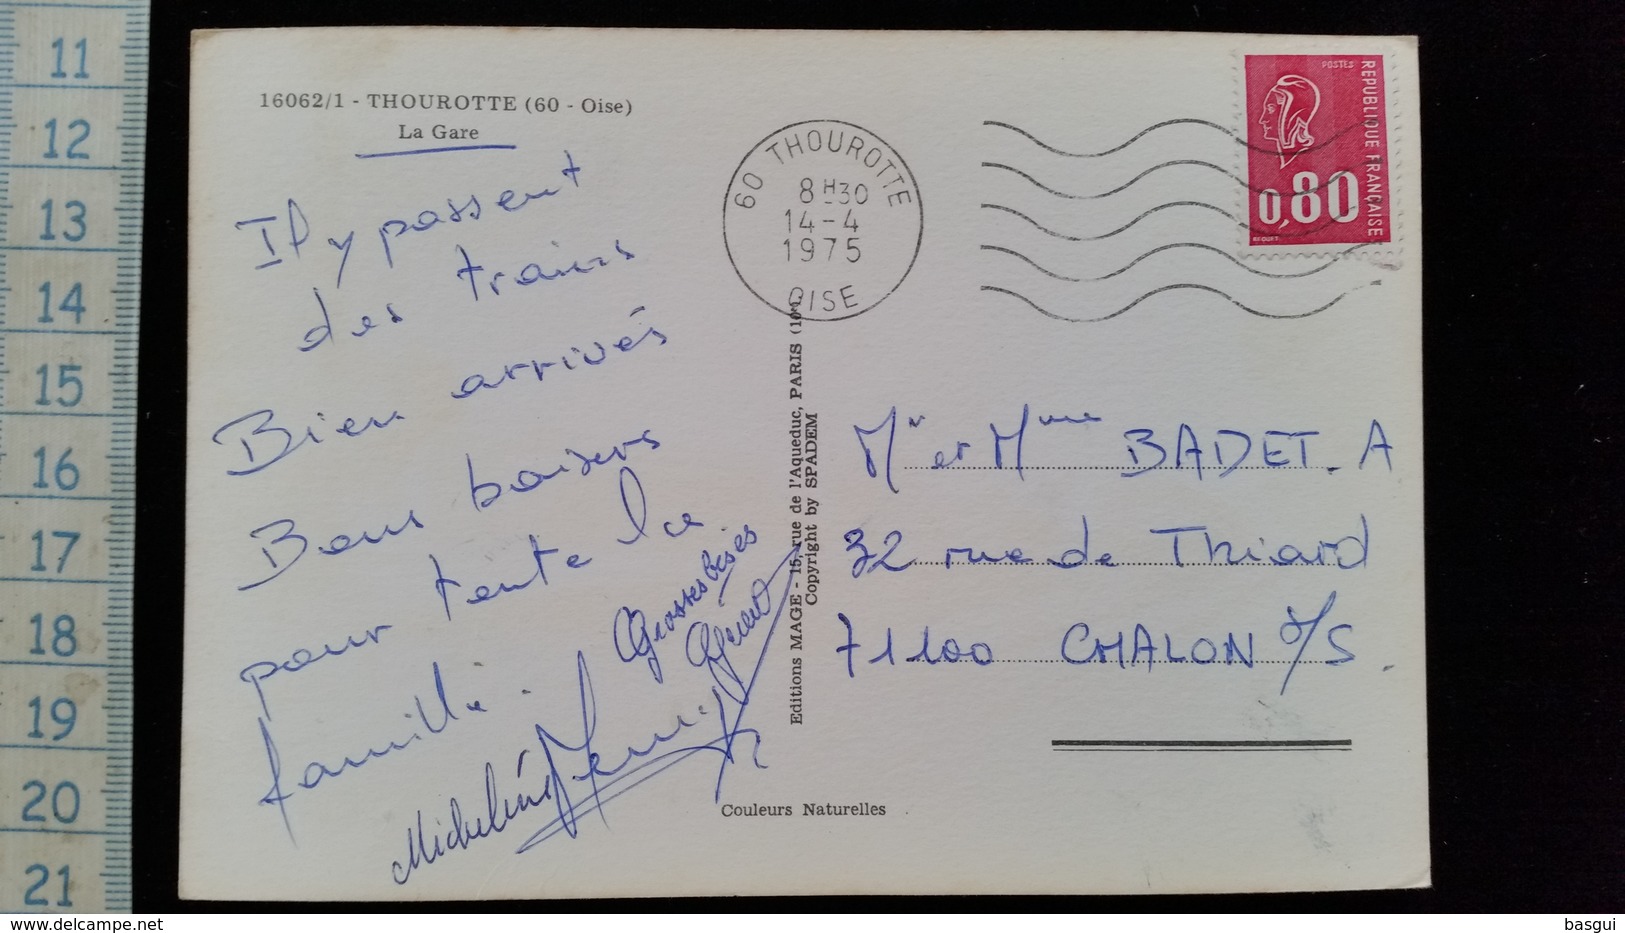 11
12
13
14
15
16
17
18
19
20
21
16062/1 - THOUROTTE (60 - Oise)
La Gare
Il y passent
des trains
Bien arrivés
Bons baisers
pour toute la
famille.
Grosses bises
Gérard
Micheline
60 THOUROTTE
8H30
14-4
1975
OISE
POSTES
REPUBLIQUE FRANÇAISE
0,80
BEQUET
Editions MAGE - 15, rue de l'Aqueduc, PARIS (10e)
Copyright by SPADEM
Mr et Mme BADET. A
32 rue de Thiard
71100 CHALON s/S.
Couleurs Naturelles
delcampe.net
basgui